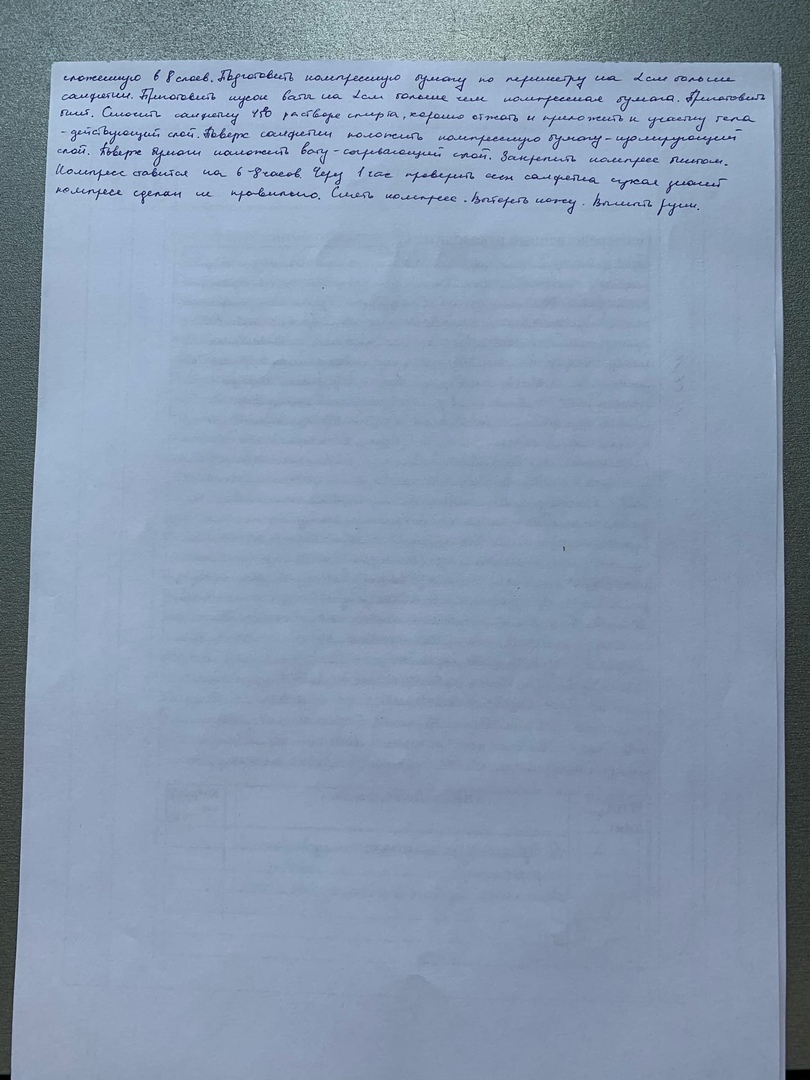 сложенную в 8 слоев. Подготовить компрессную бумагу по периметру на 2см больше
салфетки. Приготовить кусок ваты на 2см больше чем компрессная бумага. Приготовить
бинт. Смочить салфетку в растворе спирта, хорошо отжать и приложить к участку тела
-действующий слой. Поверх салфетки положить компрессную бумагу-изолирующий
слой. Поверх бумаги положить вату-согревающий слой. Закрепить компресс бинтом.
Компресс ставится на 6-8 часов. Через 1 час проверить если салфетка сухая значит
компресс сделан не правильно. Снять компресс. Вытереть кожу. Вымыть руки.